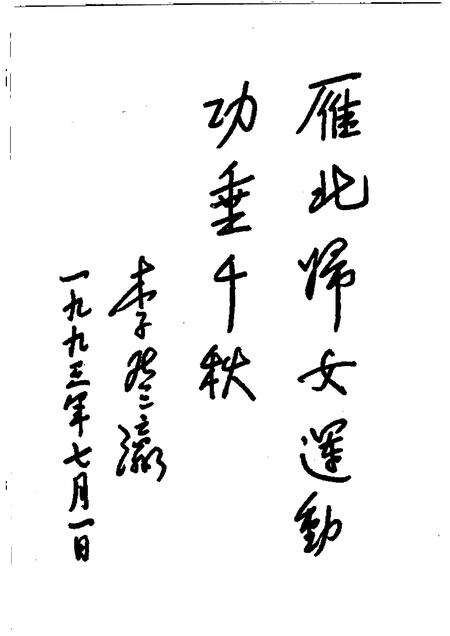 雁北婦女運動
功垂千秋
李登瀛
一九九三年七月一日